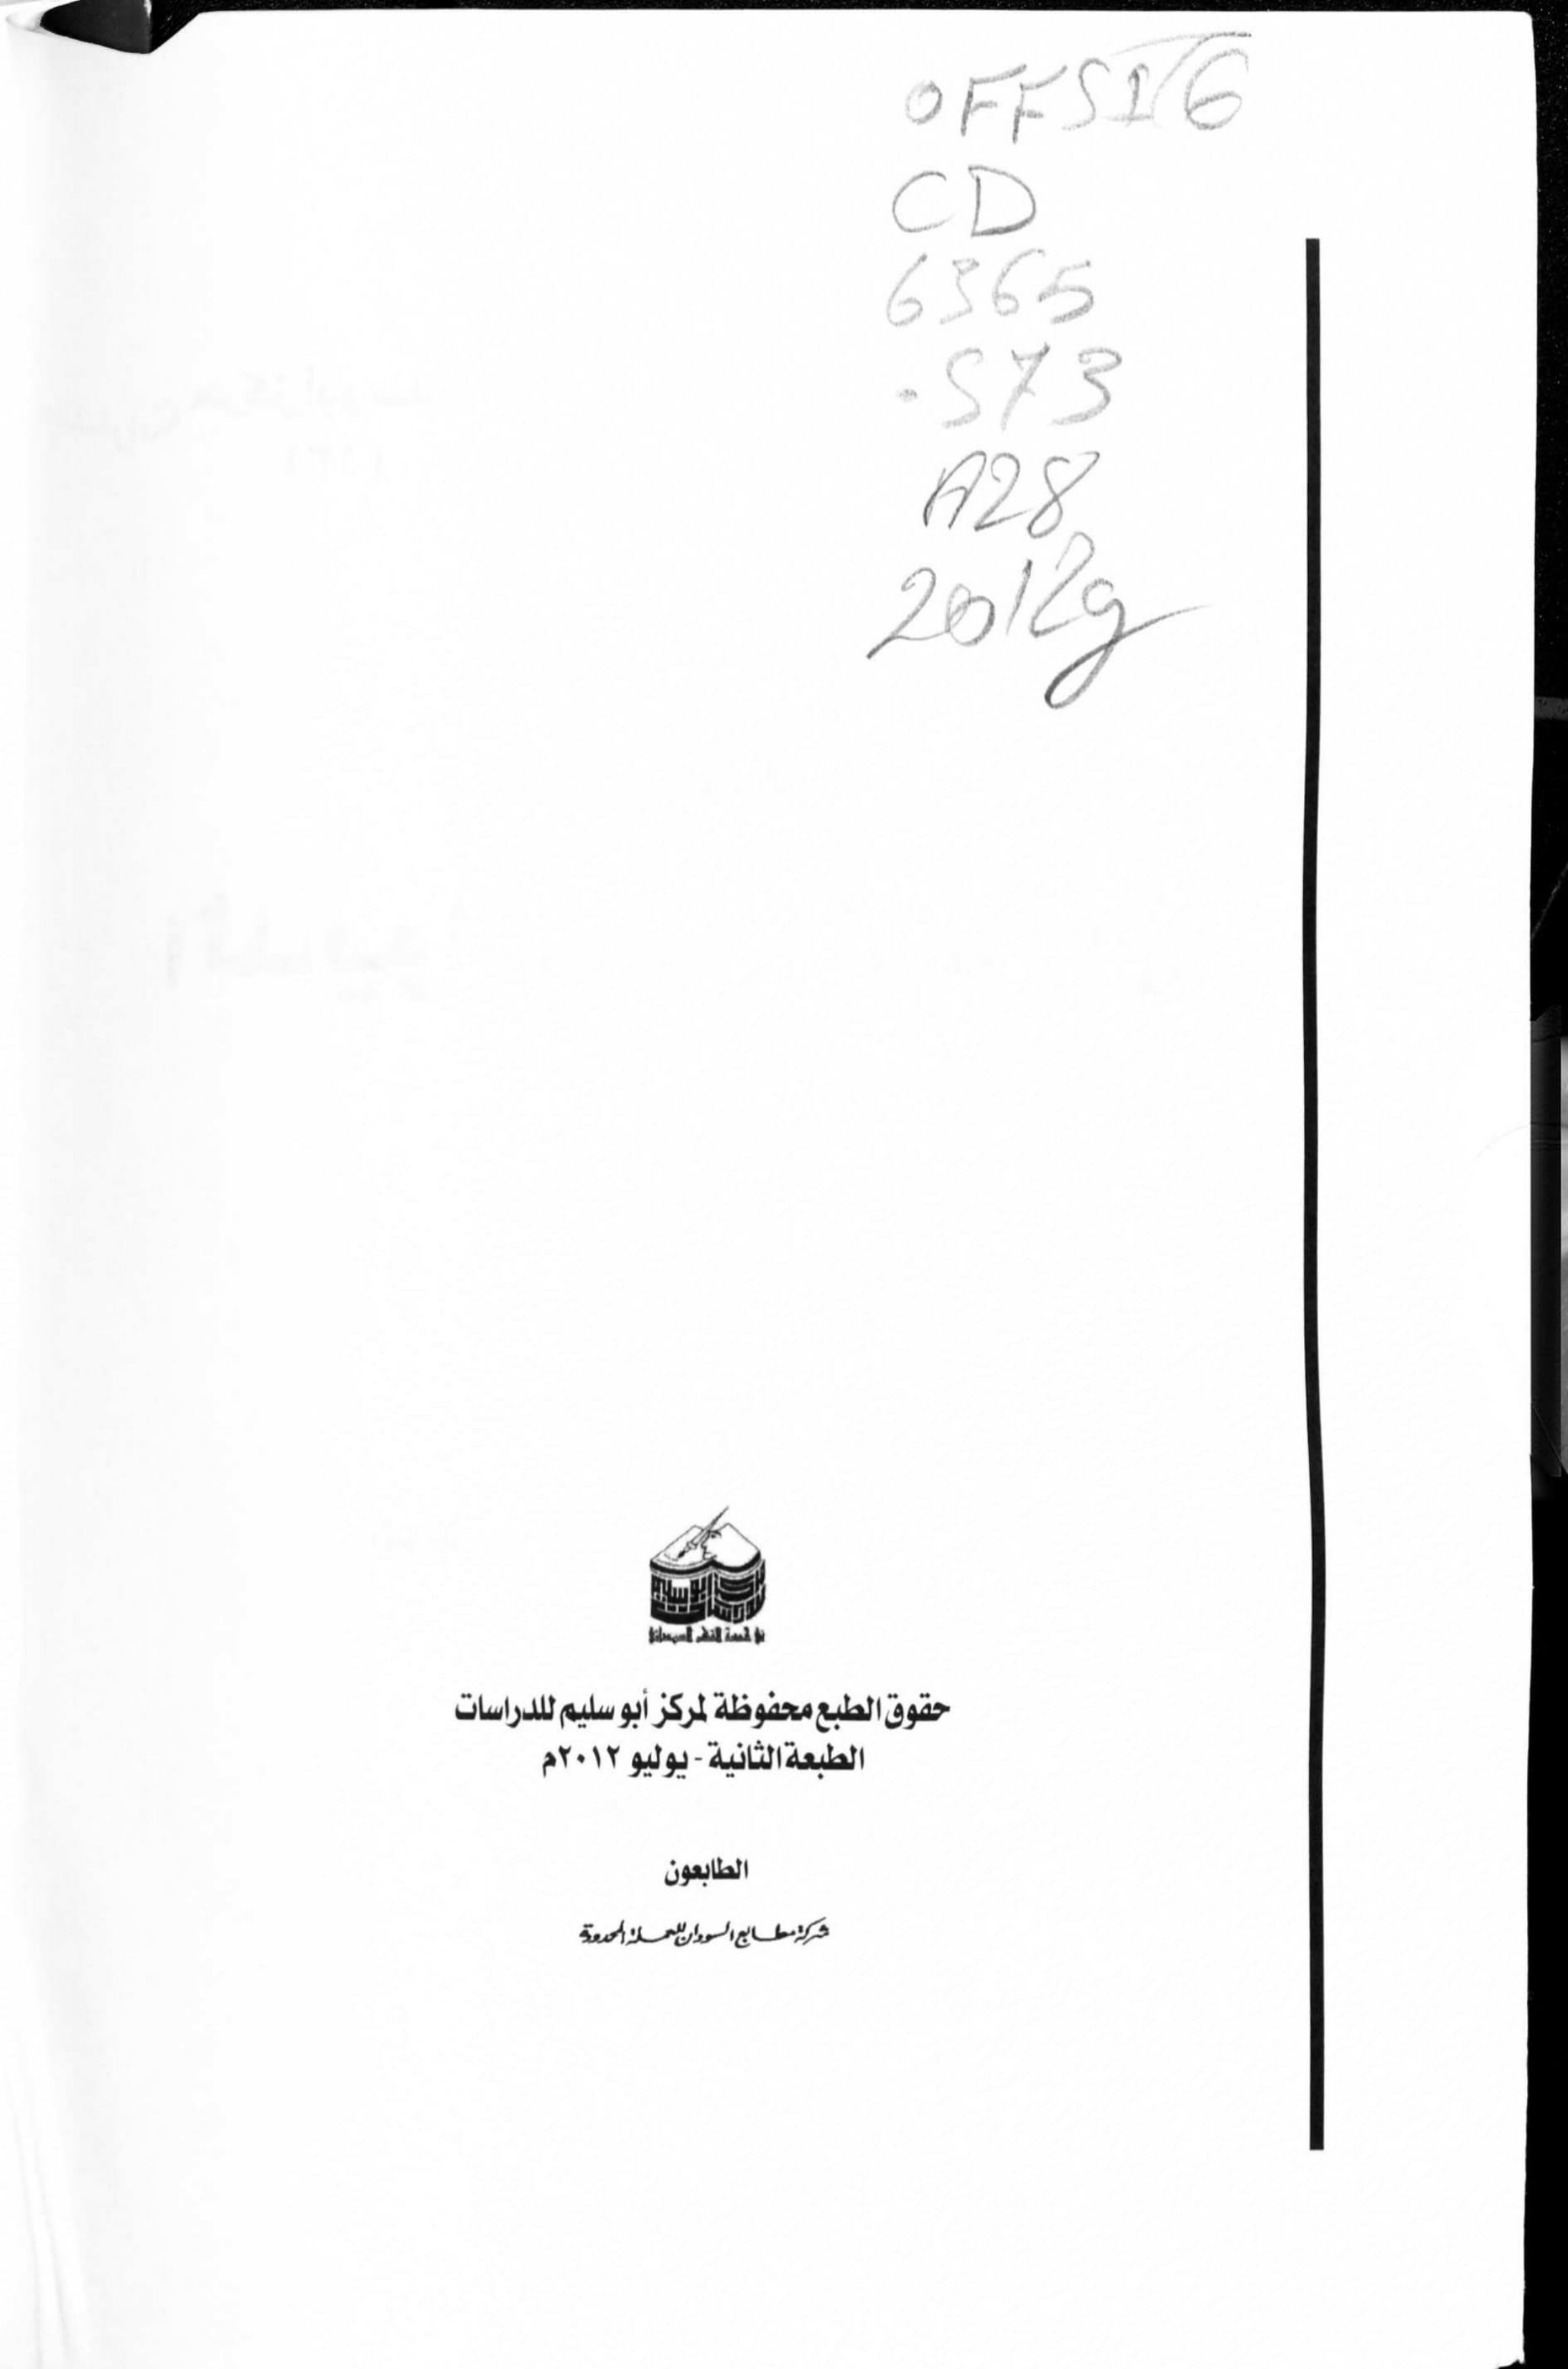 OFFSITE
CD
6365
.S73
A28
2012g
حقوق الطبع محفوظة لمركز أبو سليم للدراسات
الطبعة الثانية - يوليو ٢٠١٢م
الطابعون
شركة مطابع السودان للعملة المحدودة